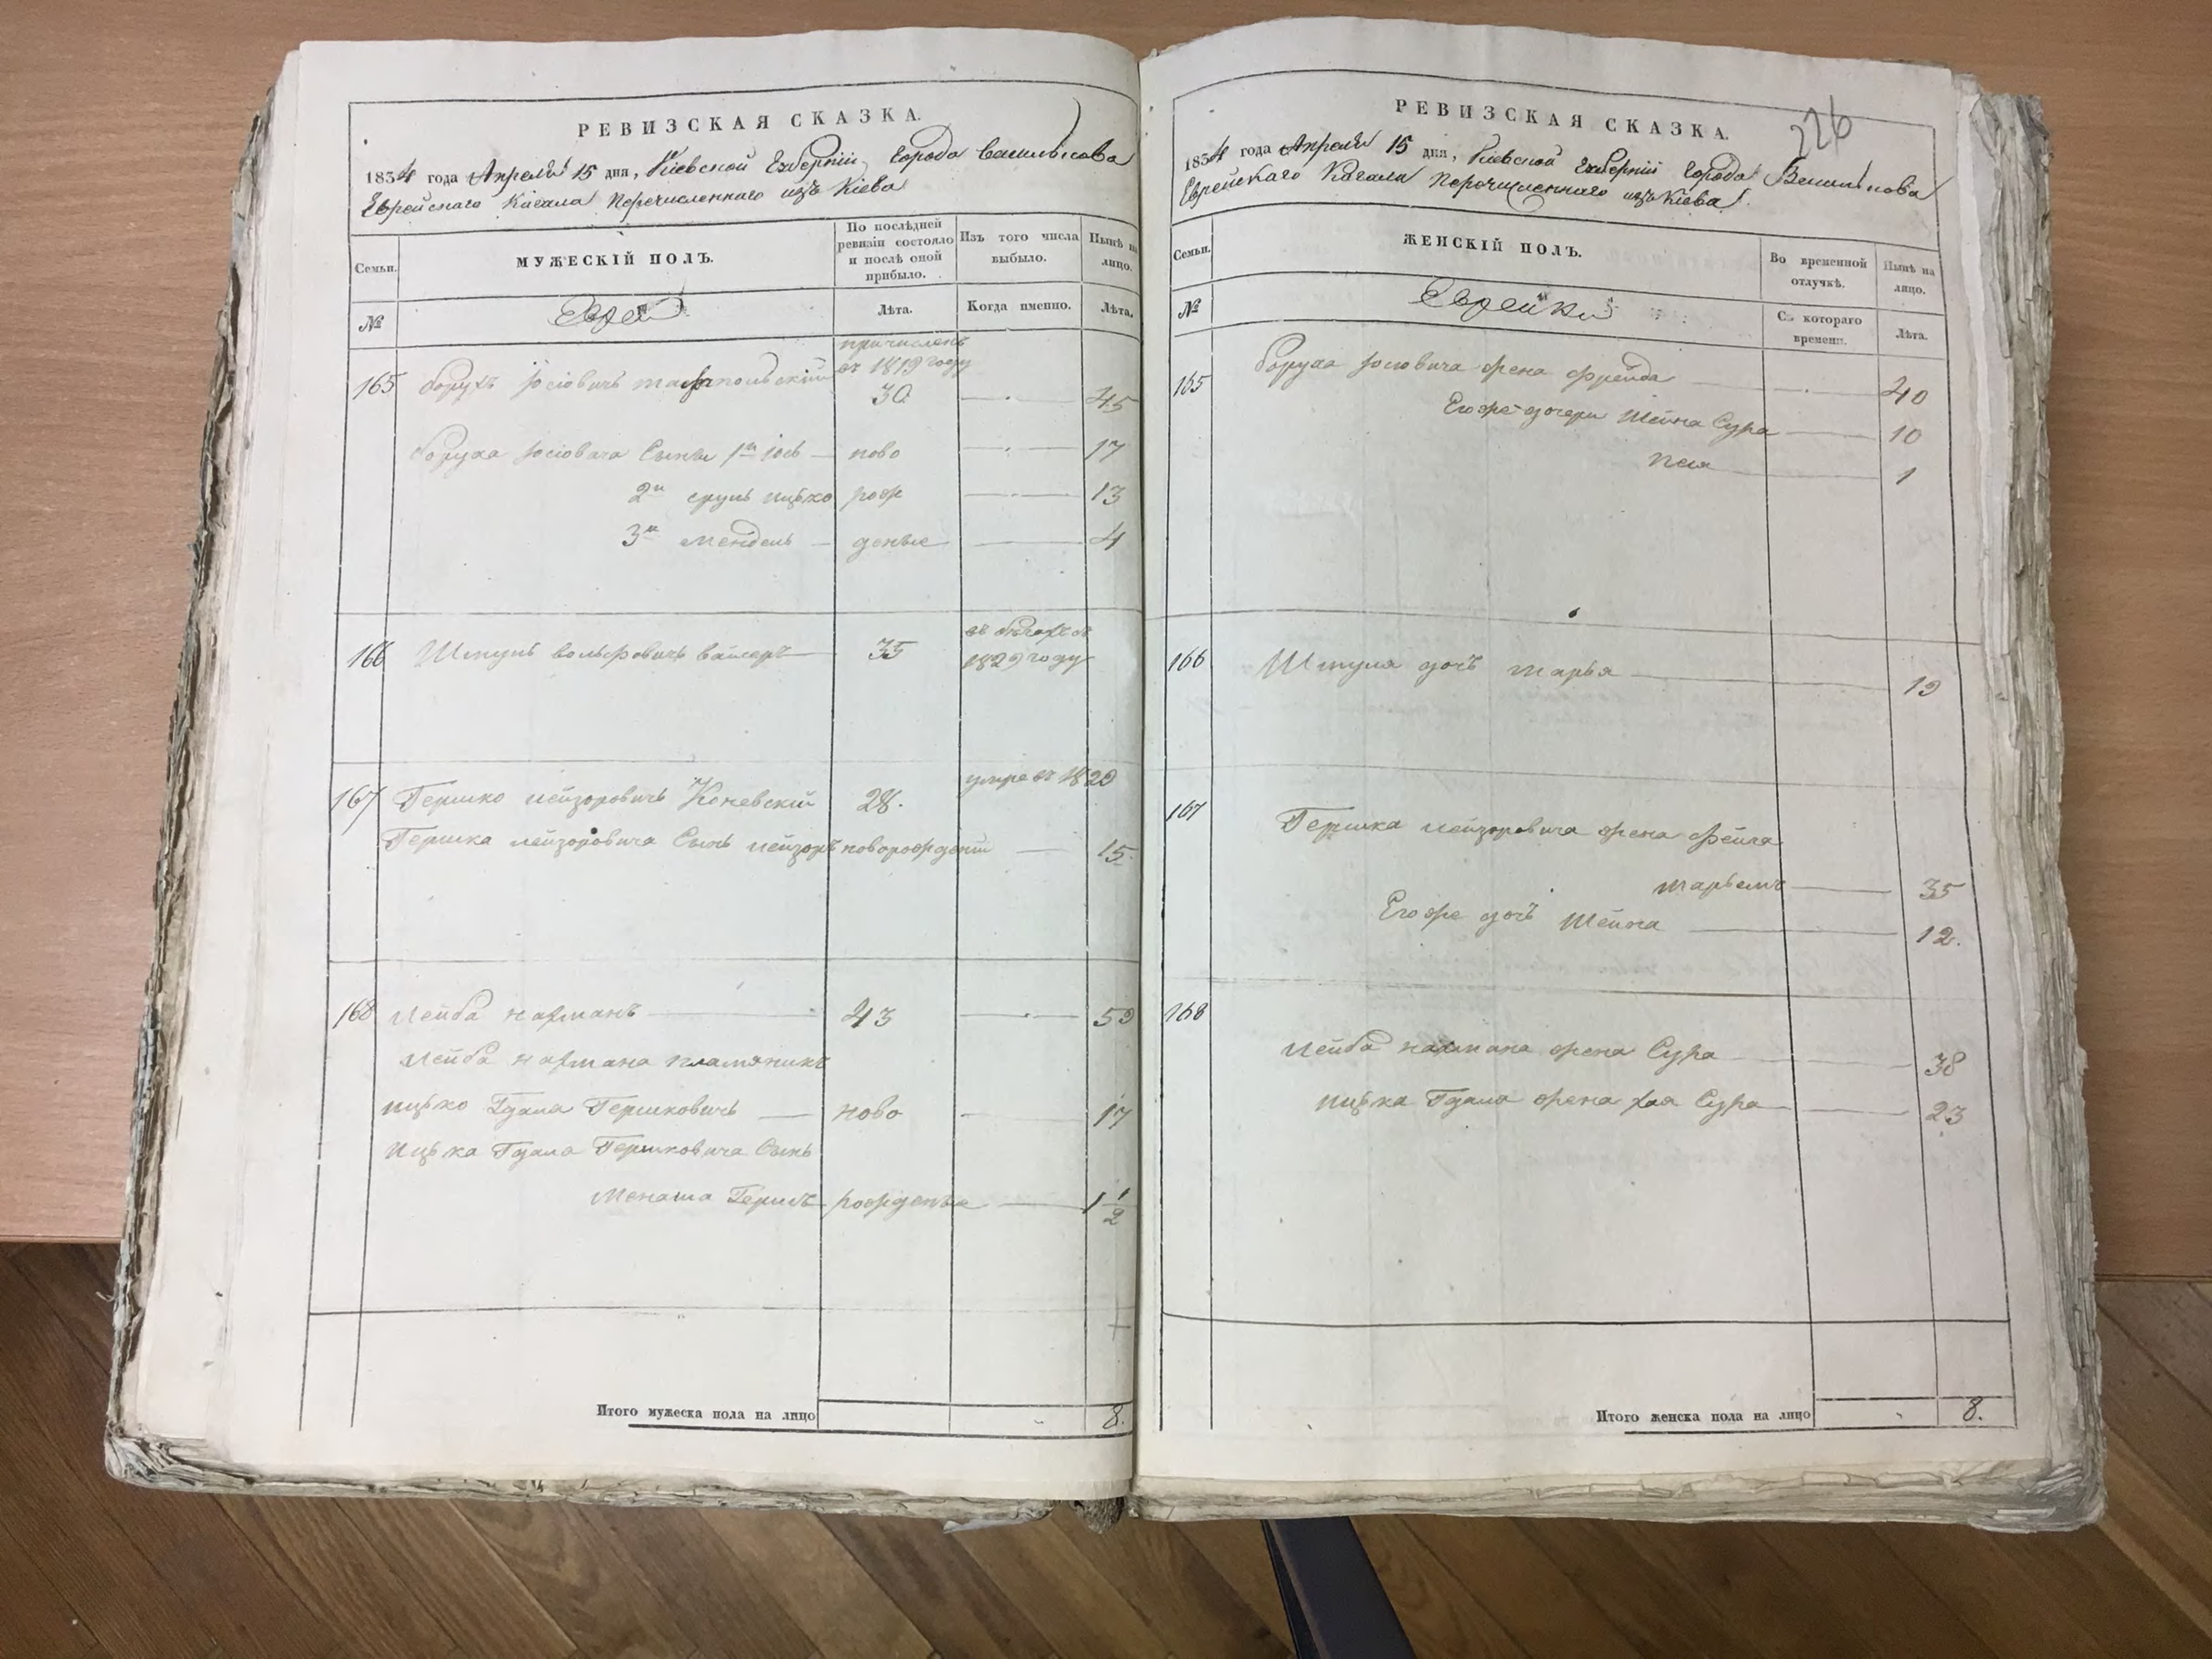 РЕВИЗСКАЯ СКАЗКА.
1834 года Апреля 15 дня, Кіевской Губерніи Города Василькова
Еврейскаго Кагала Перечисленнаго изъ Кіева
Семьи.
МУЖЕСКІЙ ПОЛЪ.
По послѣдней ревизіи состояло и послѣ оной прибыло.
Изъ того числа выбыло.
Нынѣ на лицо.
№
Евреи
Лѣта.
Когда именно.
Лѣта.
причисленъ
въ 1819 году
165 Борухъ Іосіовичъ 30 45
Боруха Іосіовича Сынъ 1й Іось ново 17
2й Срулъ Ицько рож 13
3й Мендель деные 4
166 Шмуль Вольфовичъ 35 въ
1829 году
167 Гершко Лейзоровичъ Коневскій 28. умре въ 1829
Гершка Лейзоровича Сынъ Лейзоръ новорожденій 15.
168 Лейба Нахманъ 43 59
Лейба Нахмана пламяникъ
Ицько Гдаля Гершковичъ ново 17
Ицька Гдаля Гершковича Сынъ
Менаша Гершъ рожденые 1 1/2
Итого мужеска пола на лицо 8.
226
РЕВИЗСКАЯ СКАЗКА.
1834 года Апреля 15 дня, Кіевской Губерніи Города Василькова
Еврейскаго Кагала Перечисленнаго изъ Кіева
Семьи.
ЖЕНСКІЙ ПОЛЪ.
Во временной отлучкѣ.
Нынѣ на лицо.
№
Еврейки
Съ котораго времени.
Лѣта.
165 Боруха Іосіовича жена Фрейда 40
Его же дочери Шейна Сура 10
Песя 1
166 Шмуля дочъ Марья 19
167 Гершка Лейзоровича жена Фейга
Марьемъ 35
Его же дочъ Шейна 12.
168
Лейба Нахмана жена Сура 38
Ицька Гдаля жена Хая Сура 23
Итого женска пола на лицо 8.